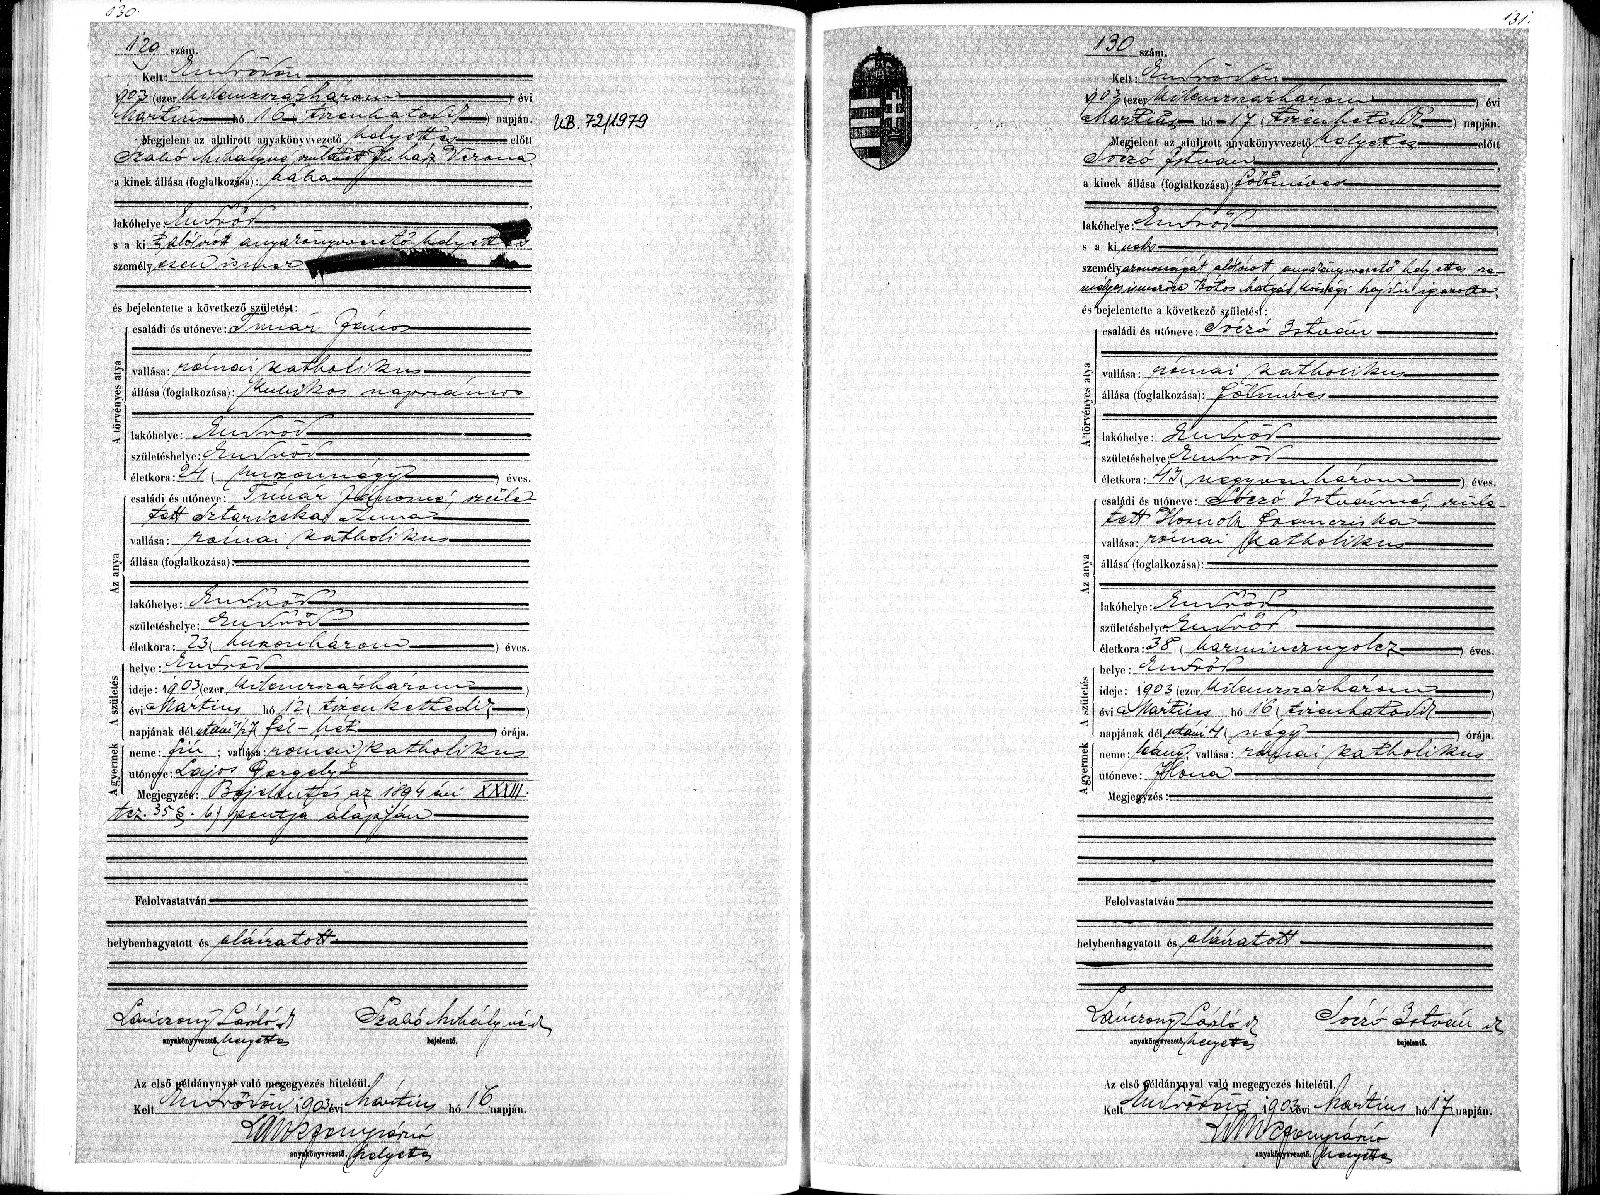 130.
129 szám.
Kelt: Endrődön
903 (ezer kilenczszázhárom ) évi
Március hó 16 ( tizenhatodik ) napján.
Megjelent az alulirott anyakönyvvezető helyettes előtt
Szabó Mihályné, született Juhász Verona
a kinek állása (foglalkozása): bába
lakóhelye: Endrőd
s a ki t alólirott anyakönyvvezető helyettes
személy esen ismer
és bejelentette a következő születést:
A törvényes atya
családi és utóneve: Timár János
vallása: római katholikus
állása (foglalkozása): kubikos napszámos
lakóhelye: Endrőd
születéshelye: Endrőd
életkora: 24 ( huszonnégy ) éves.
Az anya
családi és utóneve: Timár Jánosné, szüle-
tett Sztaricska Anna
vallása: római katholikus
állása (foglalkozása):
lakóhelye: Endrőd
születéshelye: Endrőd
életkora: 23 ( huszonhárom ) éves.
A születés
helye: Endrőd
ideje: 1903 (ezer kilenczszázhárom )
évi Március hó 12 ( tizenkettedik )
napjának dél utáni ½7 fél-hét órája.
A gyermek
neme: fiú ; vallása: római katholikus
utóneve: Lajos Gergely
Megjegyzés: Bejelentés az 1894 évi XXXIII.
tcz. 35 §. b) pontja alapján
Felolvastatván
helybenhagyatott és aláiratott
Lánczony László k Szabó Mihályné k
anyakönyvvezető. helyettes bejelentő.
Az első példánynyal való megegyezés hiteléül.
Kelt Endrődön 1903 évi Március hó 16 napján.
anyakönyvvezető. helyettes
UB. 72/1979
131.
130 szám.
Kelt: Endrődön
903 (ezer kilenczszázhárom ) évi
Március hó 17 ( tizenhetedik ) napján.
Megjelent az alulirott anyakönyvvezető helyettes előtt
Sóczó István
a kinek állása (foglalkozása) földmíves
lakóhelye: Endrőd
s a ki nek
személyazonosságát alólirott anyakönyvvezető helyettes sze-
mélyes ismerőse hatóság községi hajdú igazolta.
és bejelentette a következő születést:
A törvényes atya
családi és utóneve: Sóczó István
vallása: római katholikus
állása (foglalkozása): földmíves
lakóhelye: Endrőd
születéshelye: Endrőd
életkora: 43 ( negyvenhárom ) éves.
Az anya
családi és utóneve: Sóczó Istvánné, szüle-
tett Homok Francziska
vallása: római katholikus
állása (foglalkozása):
lakóhelye: Endrőd
születéshelye: Endrőd
életkora: 38 ( harmincznyolcz ) éves.
A születés
helye: Endrőd
ideje: 1903 (ezer kilenczszázhárom )
évi Március hó 16 ( tizenhatodik )
napjának dél utáni 4 ( négy ) órája.
A gyermek
neme: leány; vallása: római katholikus
utóneve: Ilona
Megjegyzés:
Felolvastatván
helybenhagyatott és aláiratott
Lánczony László k Sóczó István k
anyakönyvvezető. helyettes bejelentő.
Az első példánynyal való megegyezés hiteléül.
Kelt Endrődön 1903 évi Március hó 17 napján.
anyakönyvvezető. helyettes